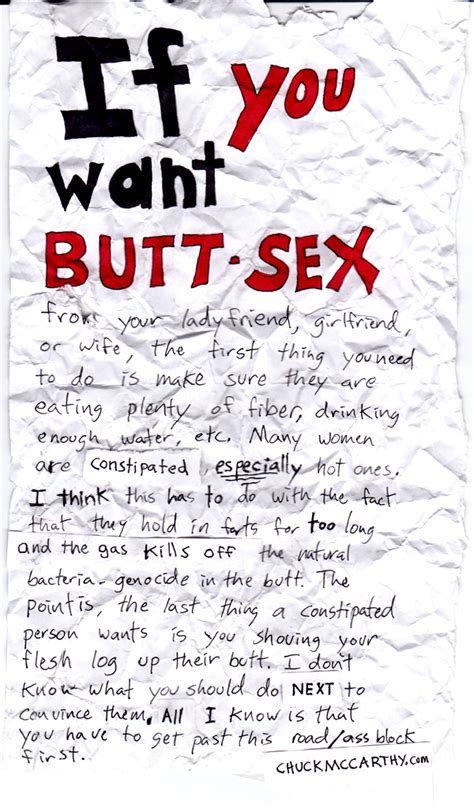 If you
want
BUTT-SEX
from your ladyfriend, girlfriend,
or wife, the first thing you need
to do is make sure they are
eating plenty of fiber, drinking
enough water, etc. Many women
are constipated, especially hot ones.
I think this has to do with the fact
that they hold in farts for too long
and the gas kills off the natural
bacteria-genocide in the butt. The
point is, the last thing a constipated
person wants is you shoving your
flesh log up their butt. I don't
know what you should do NEXT to
convince them. All I know is that
you have to get past this road/ass block
first.
CHUCKMCCARTHY.com